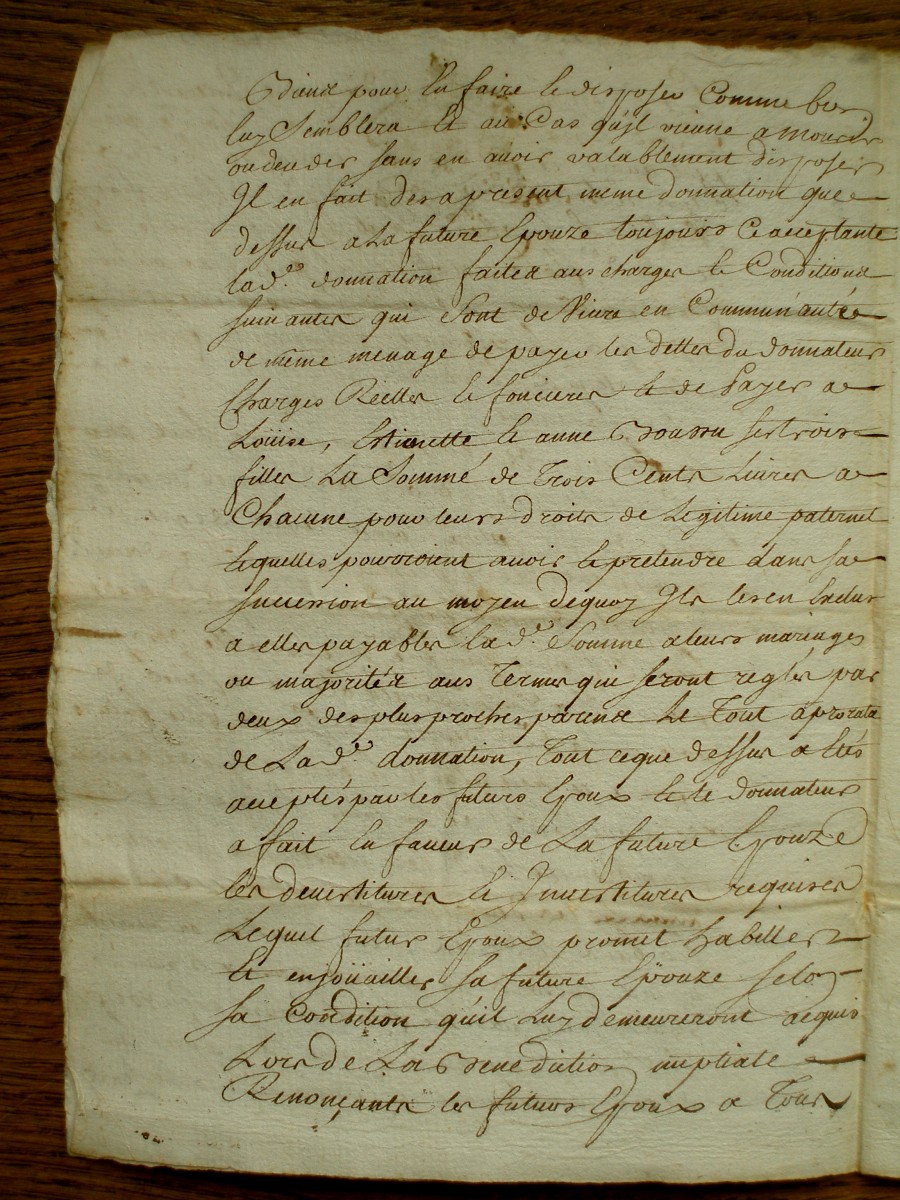 pour En faire Et disposer Comme bon
luy Semblera Et au Cas qu'jl vienne a mourir
ou deceder sans en avoir valablement disposer
Jl en fait des a present meme donnation que
dessus a La future Epouze toujours Ce acceptante
la d.e donnation faitte aus charges Et Conditions
suivantes qui Sont de Vivre en Communautée
de même menage de payer les dettes du donnateur
Charges Réelles Et foncieres Et de Payer a
Loüise, Estiennette Et anne ses trois
filles La Sommé de Trois Cents Livres a
Chacune pour leurs droits de Legitime paternel
Lequelles pourroient avoir Et pretendre dans sa
succession au moyen dequoy Jl les en Exclus
a elles payables la d.e Somme a leurs mariages
ou majoritée aus Termes qui seront reglés par
deux des plus proches parents Le Tout a prorata
de La d.e donnation, Tout ce que dessus a Etés
acceptés par les futurs Epoux Et le donnateur
a fait En faveur de La future Epouze
les devestitures Et Jnvestitures requises
Lequel futur Epoux promet habiller
Et enjoüailler sa future Epouze selon
sa Condition qu'il Luy demeureront acquis
Lors de La Benediction nuptiale
Renonçants les futurs Epoux a Tous